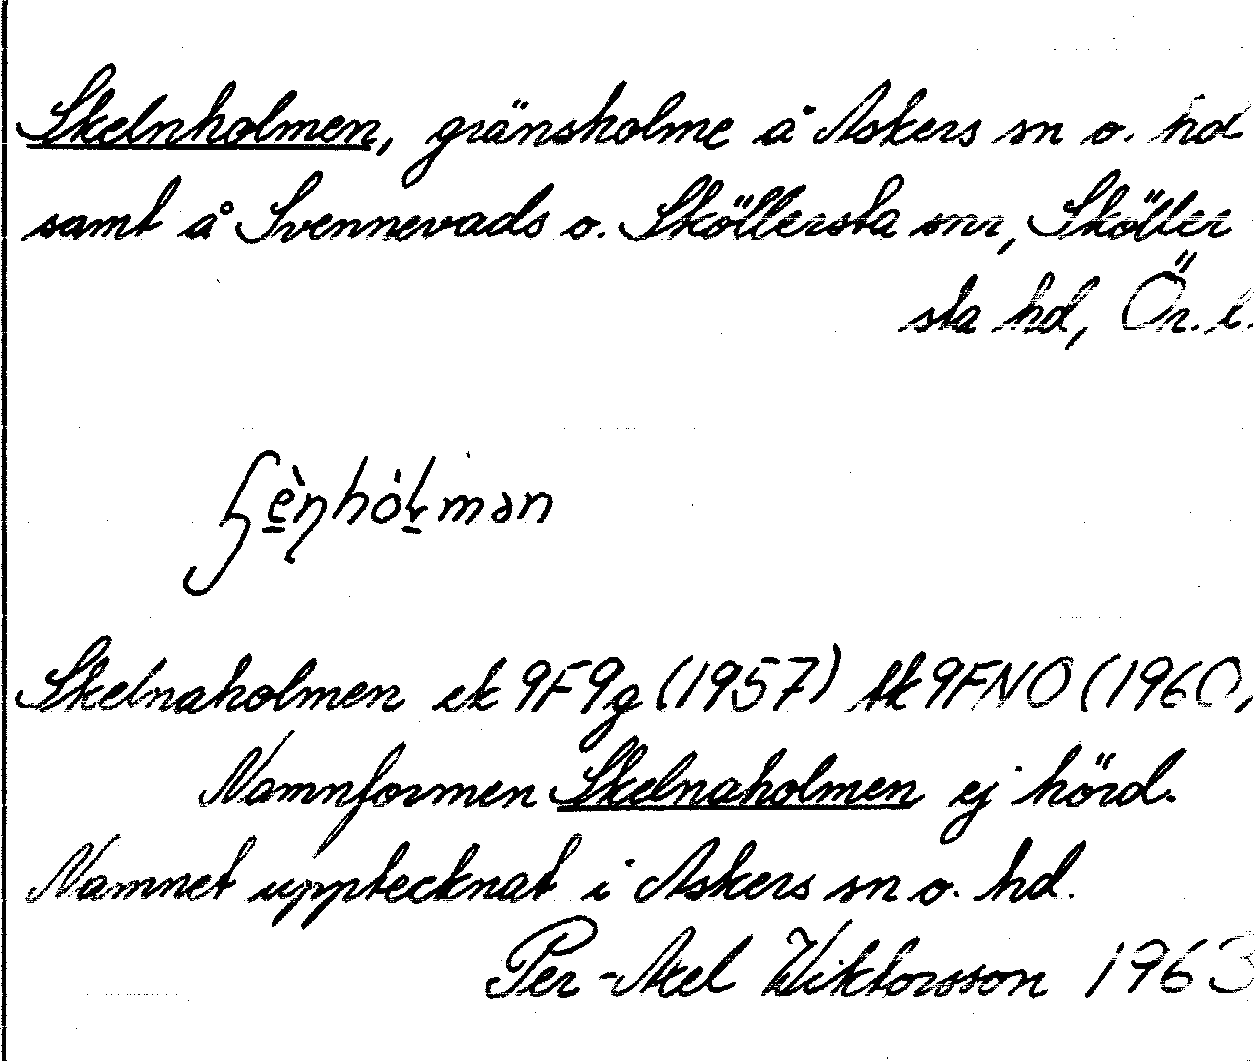 Skelnholmen, gränsholme å Askers sn o. hd
samt å Svennevads o. Sköllersta snr, Sköller
sta hd, Ör. l.
Skelnaholmen ek 9F9g (1957) tk 9FNO (1960)
Namnformen Skelnaholmen ej hörd.
Namnet upptecknat i Askers sn o. hd.
Per-Axel Wiktorsson 1963